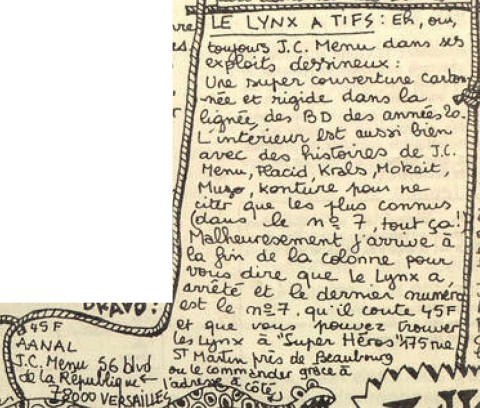 LE LYNX A TIFS : Eh, oui,
toujours J.C. Menu dans ses
exploits dessineux :
Une super couverture carton
-née et rigide dans la
lignée des BD des années 20.
L'intérieur est aussi bien
avec des histoires de J.C.
Menu, Placid, Krals, Mokeit,
Muzo, Konture pour ne
citer que les plus connus
(dans le nº 7, tout ça!)
Malheuresement j'arrive à
la fin de la colonne pour
vous dire que le Lynx a
arrêté et le dernier numéro
est le nº7. qu'il coute 45F
et que vous pouvez trouver
les Lynx à "Super Héros" 175 rue
St Martin près de Beaubourg
ou le commander grâce à
l'adresse à côté
BRAVO!
45F
AANAL
J.C. Menu 56 blvd
de la République ←
78000 VERSAILLES